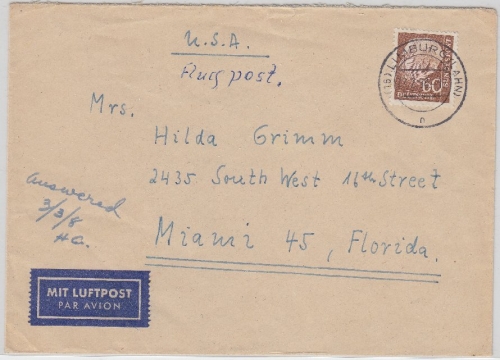 U.S.A.
Flugpost.
(16) LIMBURG (LAHN)
n
60
Mrs.
Hilda Grimm
2435 South West 16th Street
Miami 45, Florida.
answered
3/3/8
MIT LUFTPOST
PAR AVION